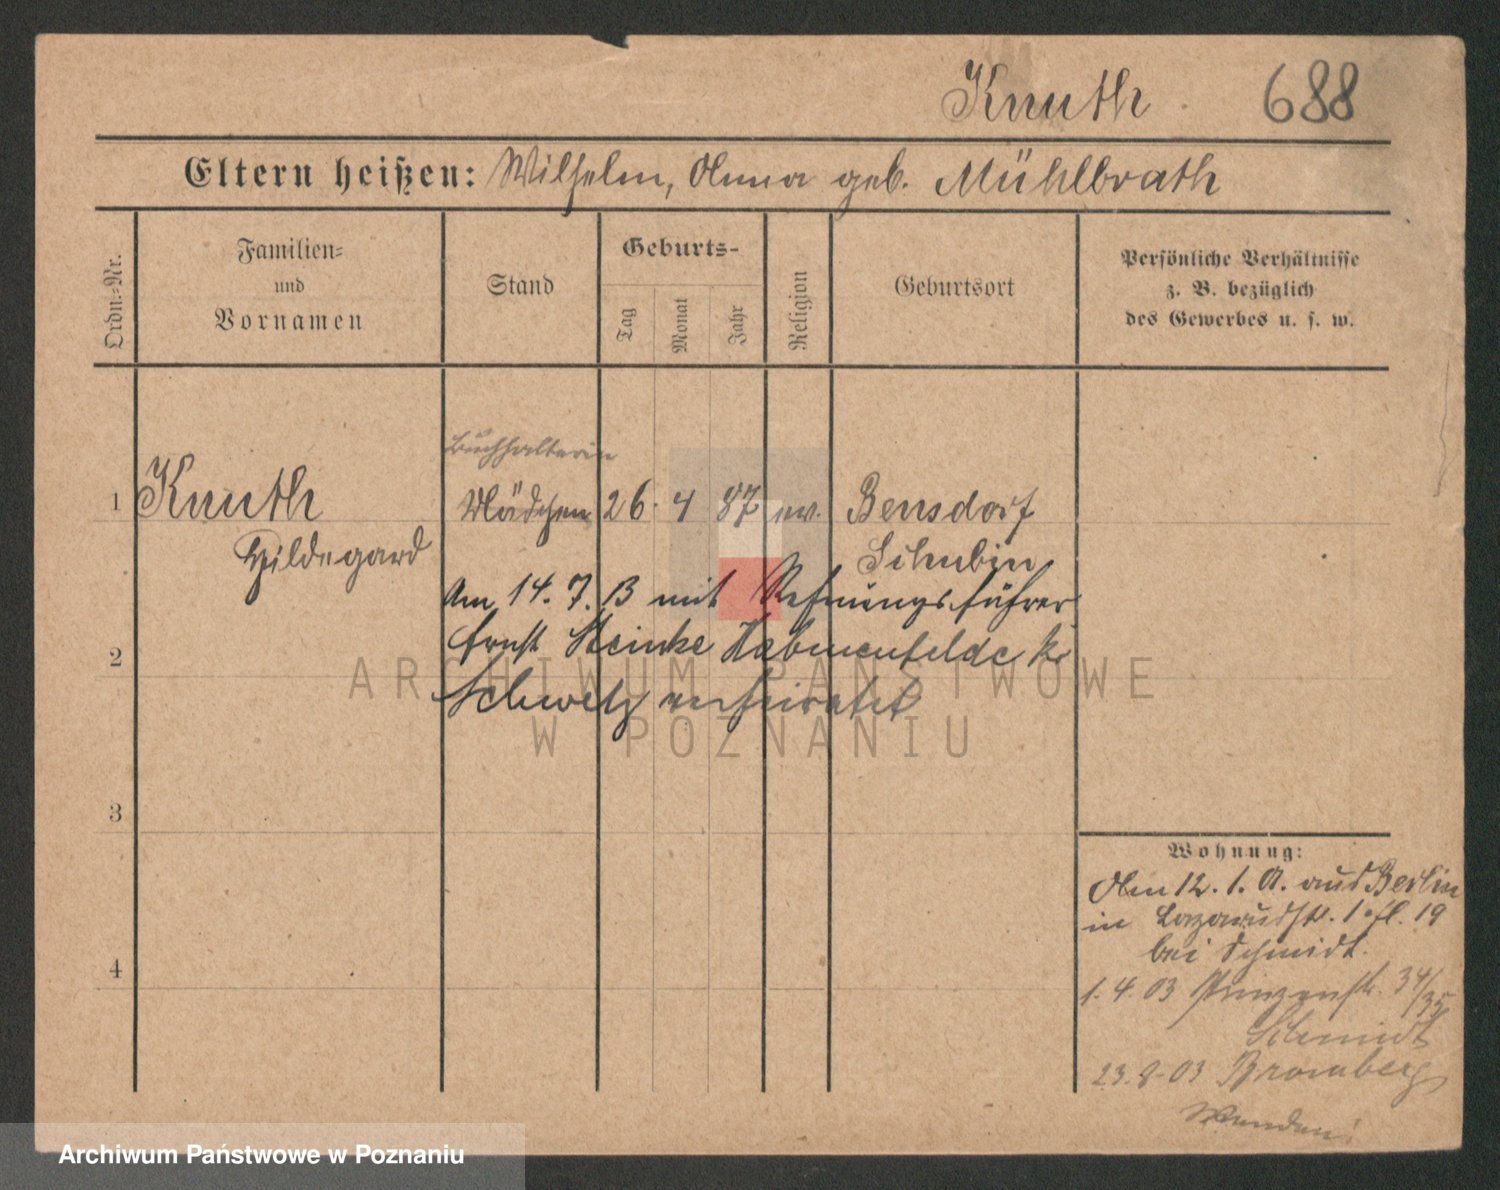 Knuth 688
Eltern heißen: Wilhelm, Anna geb. Mühlbrath
Ordn.-Nr.
Familien-
und
Vornamen
Stand
Geburts-
Tag
Monat
Jahr
Religion
Geburtsort
Persönliche Verhältnisse
z. B. bezüglich
des Gewerbes u. s. w.
Buchhalterin
1 Knuth Mädchen 26. 4 87 ev. Bensdorf
Hildegard Schubin
Am 14. 7. 13 mit Rechnungsführer
2 Ernst Steinke
Schwetz verheiratet
3
4
Wohnung:
Am 12. 1. A. aus Berlin
in Lazarusstr. 19
bei Schmidt.
1. 4. 03 Prinzenstr. 34/35
Schmidt
23. 9. 03 Bromberg
Wenden!
ARCHIWUM PAŃSTWOWE
W POZNANIU
Archiwum Państwowe w Poznaniu